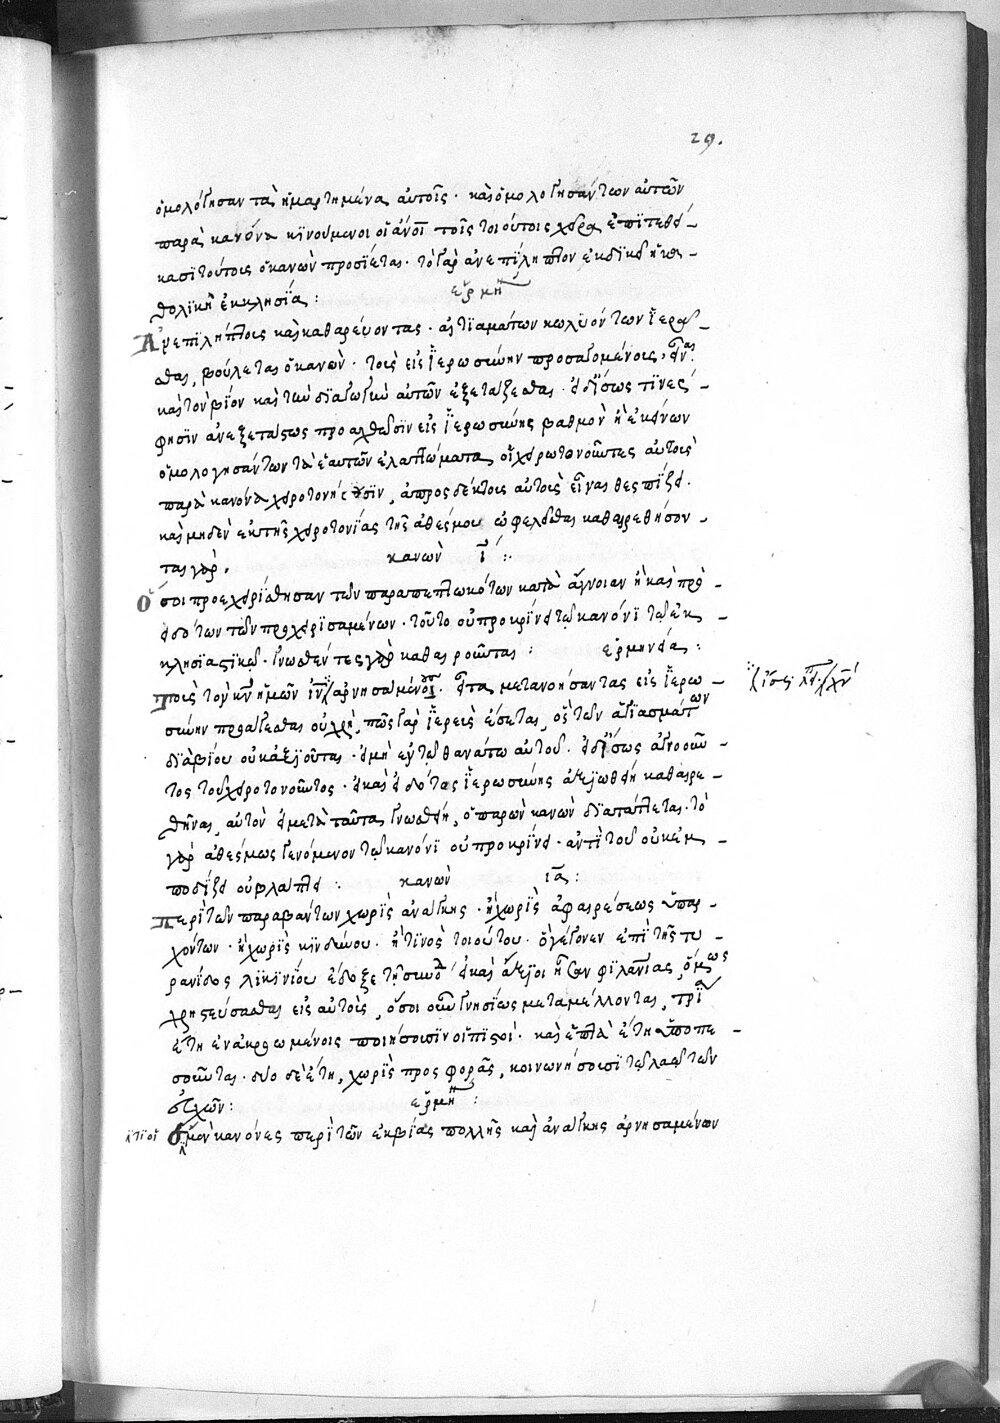 29.
ὁμολόγησαν τὰ ἡμαρτημένα αὐτοῖς· καὶ ὁμολογησάντων αὐτῶν
παρὰ κανόνα κϊνούμενοι οἱ ἄνοι τοῖς τοιούτοις χεῖρα ἐπϊτεθεί-
κασϊ τούτοις ὁ κανὼν προσϊεται· τὸ γὰρ ἀνεπίληπτον ἐκδϊκεῖ ἡ κα-
θολϊκὴ ἐκκλησϊα:
ἑρμη
Ἀνεπιλήπτους καὶ καθαρεύοντας· αἰτϊαμάτων κωλυόντων ἱερᾶ-
σθαι, βούλεται ὁ κανὼν· τοὺς εἰς ἱερωσύνην προσαγομένους,
καὶ τὸν βϊον καὶ τὴν δϊαγωγὴν αὐτῶν ἐξετάζεσθαι· εἰ δ' ἴσως τϊνές
φησϊν ἀνεξετάστως προαχθῶσϊν εἰς ἱερωσύνης βαθμὸν ἢ ἐκείνων
ὁμολογησάντων τὰ ἑαυτῶν ἐλαττώματα, οἱ χειροτονοῦντες αὐτοὺς
παρὰ κανόνα χειροτονήσουσϊν, ἀπροσδέκτους αὐτοὺς εἶναι θεσπϊζει·
καὶ μηδὲν ἐκ τῆς χειροτονϊας τῆς ἀθέσμου ὠφελεῖσθαι καθαιρεθήσον-
ται γὰρ.
κανὼν ϊ:
Ὅσοι προεχειρϊσθησαν τῶν παραπεπτωκότων κατὰ ἄγνοιαν ἢ καὶ προ-
εἰδότων τῶν προχειρϊσαμένων· τοῦτο οὐ προκρίνει τῷ κανόνϊ τῷ ἐκ-
κλησϊαστϊκῷ· γνωσθέντες γὰρ καθαιροῦνται:
ἑρμηνεία:
Τοὺς τὸν κν ἡμῶν ϊν ἀρνησαμένους· εἶτα μετανοήσαντας εἰς ἱερω-
σύνην προάγεσθαι οὐ χρὴ, πῶς γὰρ ἱερεὺς ἔσεται, ὃς τῶν ἁγϊασμάτων
δϊὰ βϊου οὐ καταξϊοῦται· εἰ μὴ ἐν τῷ θανάτῳ αὐτοῦ· εἰ δ' ἴσως ἀγνοοῦν-
τος τοῦ χειροτονοῦντος· εἰ καὶ εἰδότος ἱερωσύνης ἀξιωθείη καθαιρε-
θῆναι αὐτὸν εἰ μετὰ ταῦτα γνωσθείη, ὁ παρὼν κανὼν δϊατάττεται· τὸ
γὰρ ἀθέσμως γενόμενον τῷ κανόνϊ οὐ προκρίνει· ἀντὶ τοῦ οὐκ ἐμ-
ποδίζει οὐ βλάπτει:
κανὼν ϊα:
Περὶ τῶν παραβάντων χωρὶς ἀνάγκης· ἢ χωρὶς ἀφαιρέσεως ὑπαρ-
χόντων· ἢ χωρὶς κϊνδύνου· ἤ τϊνος τοιούτου· ὃ γέγονεν ἐπὶ τῆς τυ-
ραννίδος λϊκϊνίου ἔδοξε τῇ συνόδ εἰ καὶ ἀνάξϊοι ἦσαν φϊλανιας, ὅμως
χρηστεύσασθαι εἰς αὐτοὺς, ὅσοι οὖν γνησϊως μεταμέλλονται, τρϊα
ἔτη ἐν ἀκροωμένοις ποιήσουσϊν οἱ πϊστοὶ· καὶ ἑπτὰ ἔτη ὑποπε-
σοῦνται· δύο δὲ ἔτη, χωρὶς προσφορᾶς, κοινωνήσουσϊ τῷ λαῷ τῶν
εὐχῶν:
ἑρμη:
μὲν κανόνες περὶ τῶν ἐκ βϊας πολλῆς καὶ ἀνάγκης ἀρνησαμένων